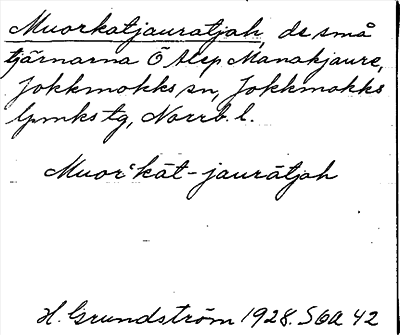 Muorkatjauratjah, de små
tjärnarna Ö Alep Manakjaure,
Jokkmokks sn, Jokkmokks
lpmks tg, Norrb. l.
Muorˈkāt-jaurātjah
H. Grundström 1928. SOA 42